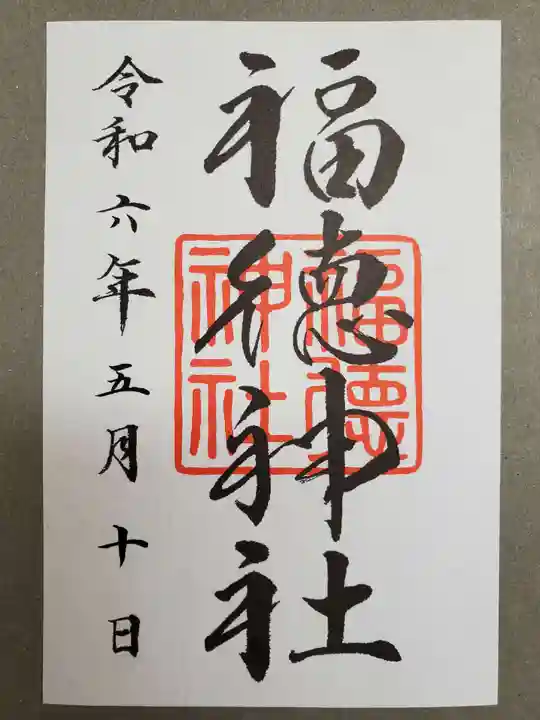 福徳神社
福徳
神社
令和六年五月十日